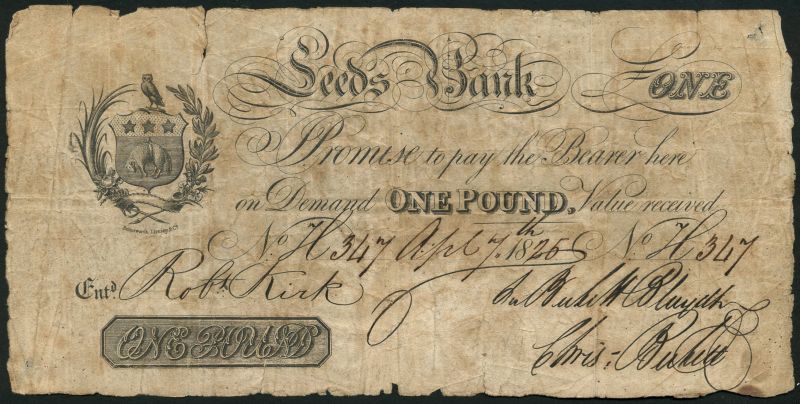 Leeds Bank £ONE
I Promise to pay the Bearer here
on Demand ONE POUND, Value received
No H 347 Apl 7th 1825 No H 347
Entd Robt Kirk
Chris: Beckett
ONE POUND